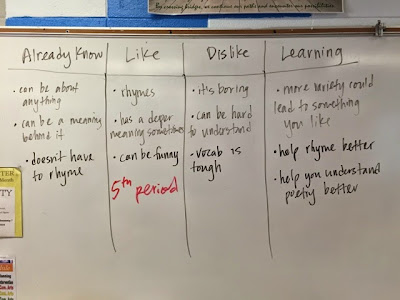 By crossing bridges, we
Already Know
Like
Dislike
Learning
• can be about
anything
• can be a meaning
behind it
• doesn't have
to rhyme
• rhymes
• has a deeper
meaning sometimes
• can be funny
5th period
• it is boring
• can be hard
to understand
• vocab is
tough
• more variety could
lead to something
you like
• help rhyme better
• help you understand
poetry better